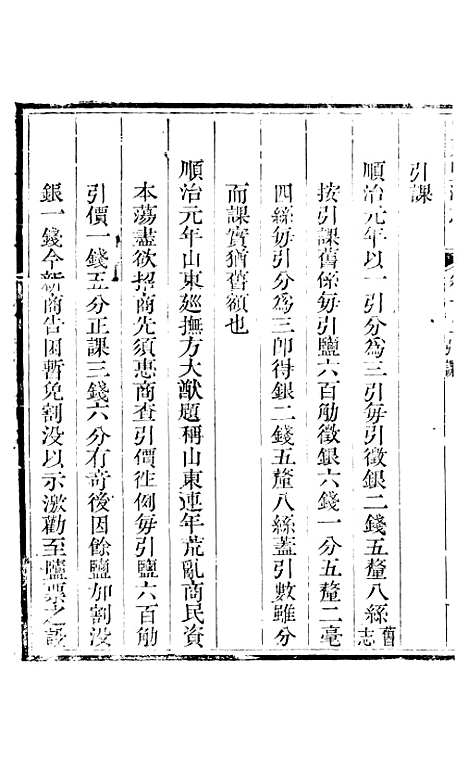 引課
順治元年以一引分為三引每引徵銀二錢五釐八絲舊志
按引課舊係每引鹽六百觔徵銀六錢一分五釐二毫
四絲每引分為三卽得銀二錢五釐八絲蓋引數雖分
而課實猶舊額也
順治元年山東廵撫方大猷題稱山東連年荒亂商民資
本蕩盡欲招商先須恵商查引價徃例每引鹽六百觔
引價一錢五分正課三錢六分有竒後因餘鹽加割没
銀一錢今新商告困暫免割没以示激勸至鹽票之設